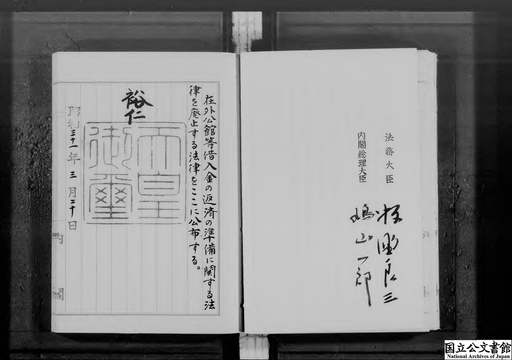 在外公館等借入金の返済の準備に関する法
律を廃止する法律をここに公布する。
裕仁
天皇
御璽
昭和三十一年三月二十日
法務大臣
内閣総理大臣
牧野良三
鳩山一郎
国立公文書館
National Archives of Japan